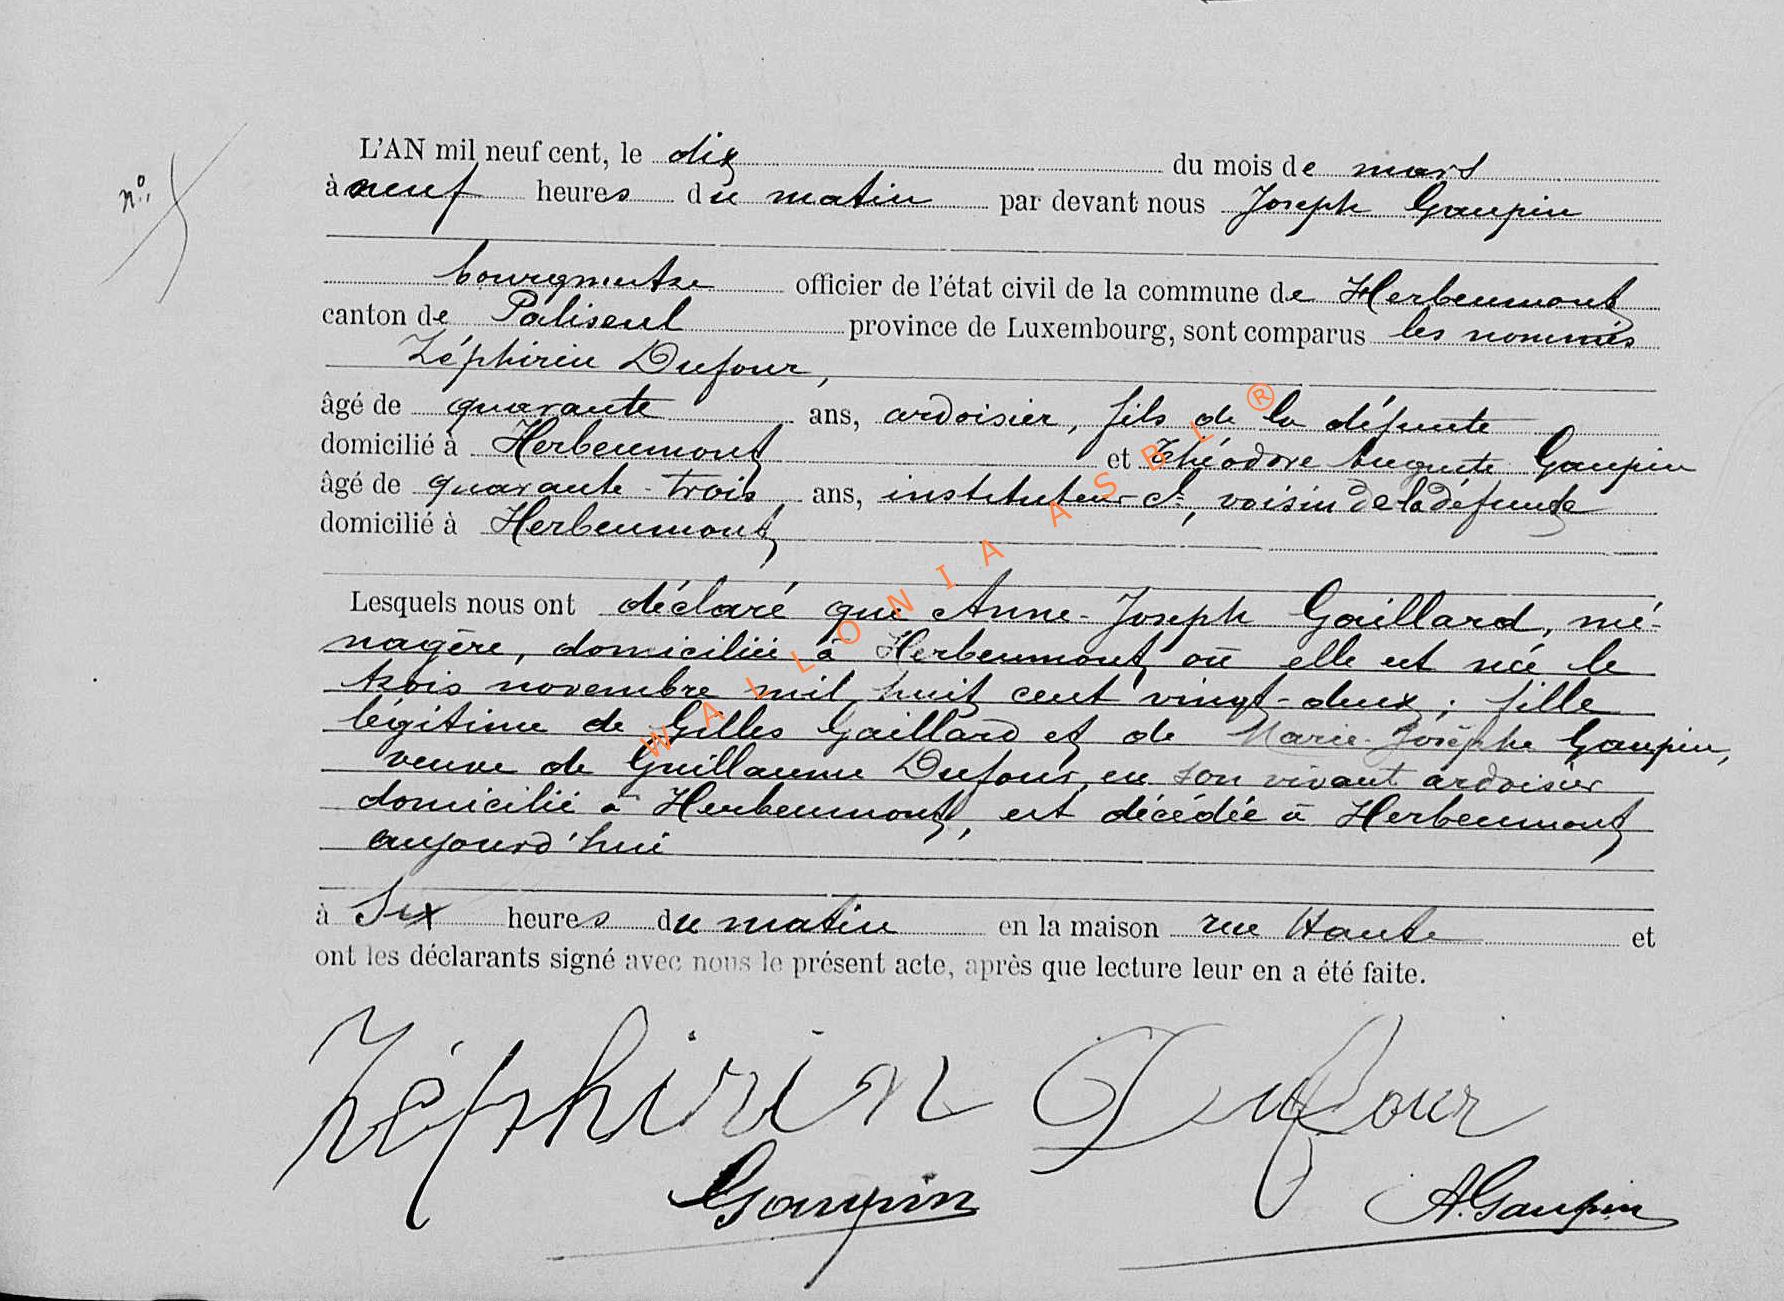 n° 5
L'AN mil neuf cent, le dix du mois de mars
à neuf heures du matin par devant nous Joseph Gaupin
bourgmestre officier de l'état civil de la commune de Herbeumont
canton de Paliseul province de Luxembourg, sont comparus les nommés
Zéphirin Dufour,
âgé de quarante ans, ardoisier, fils de la défunte
domicilié à Herbeumont et Théodore Auguste Gaupin
âgé de quarante-trois ans, instituteur cl, voisin de la défunte
domicilié à Herbeumont
Lesquels nous ont déclaré que Anne-Joseph Gaillard, mé-
nagère, domiciliée à Herbeumont où elle est née le
trois novembre mil huit cent vingt-deux ; fille
légitime de Gilles Gaillard et de Marie-Josèphe Gaupin,
veuve de Guillaume Dufour, en son vivant ardoisier
domicilié à Herbeumont, est décédée à Herbeumont
aujourd'hui
à six heures du matin en la maison rue Haute et
ont les déclarants signé avec nous le présent acte, après que lecture leur en a été faite.
Zéphirin Dufour
Gaupin A. Gaupin
WALLONIA ASBL ®